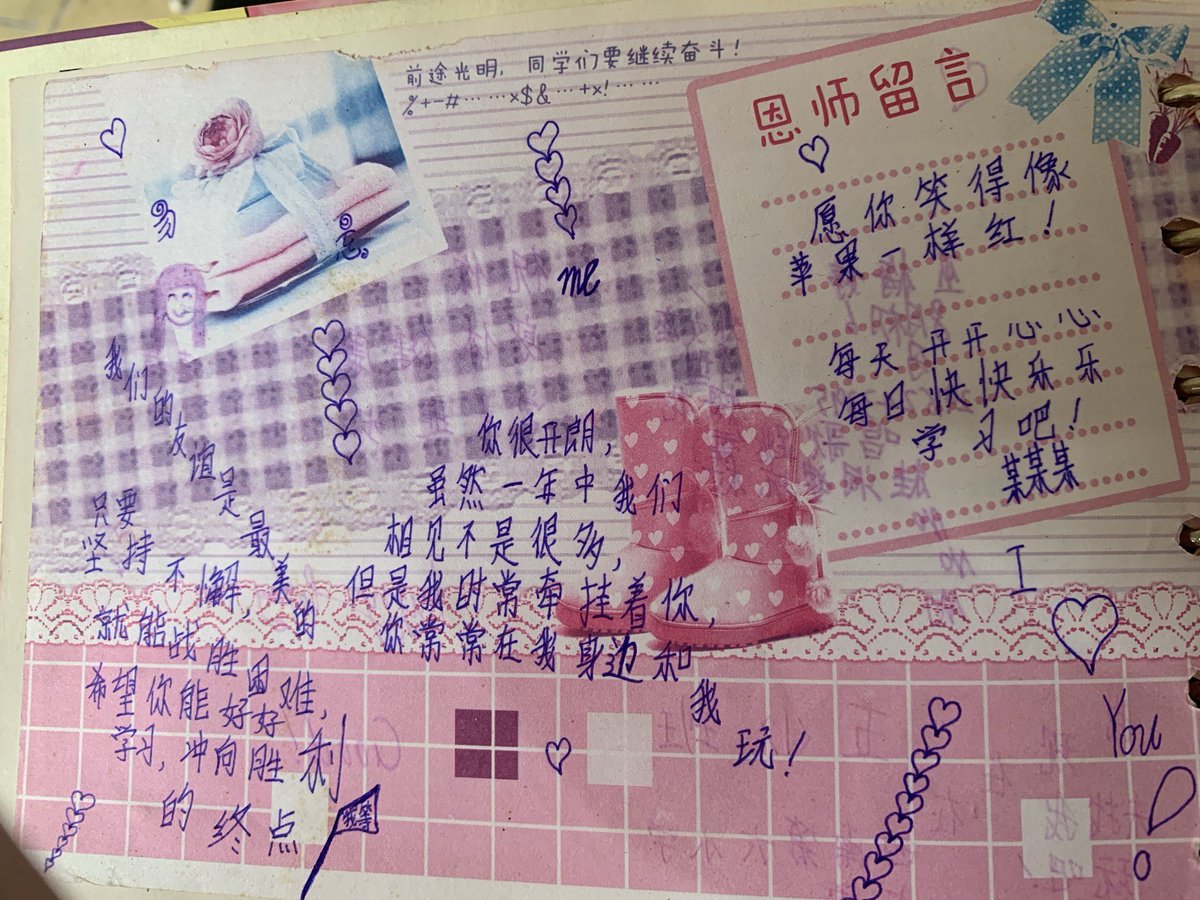 前途光明，同学们要继续奋斗！
%+-#……×$&…+×!……
恩师留言
愿你笑得像
苹果一样红！
每天开开心心
每日快快乐乐
学习吧！
某某某
勿忘。
me
我们的友谊是最美的
只要
坚持不懈，
就能战胜困难，
希望你能好好
学习，冲向胜利
的终点
你很开朗，
虽然一年中我们
相见不是很多，
但是我时常牵挂着你，
你常常在我身边和
我
玩！
I
You
!